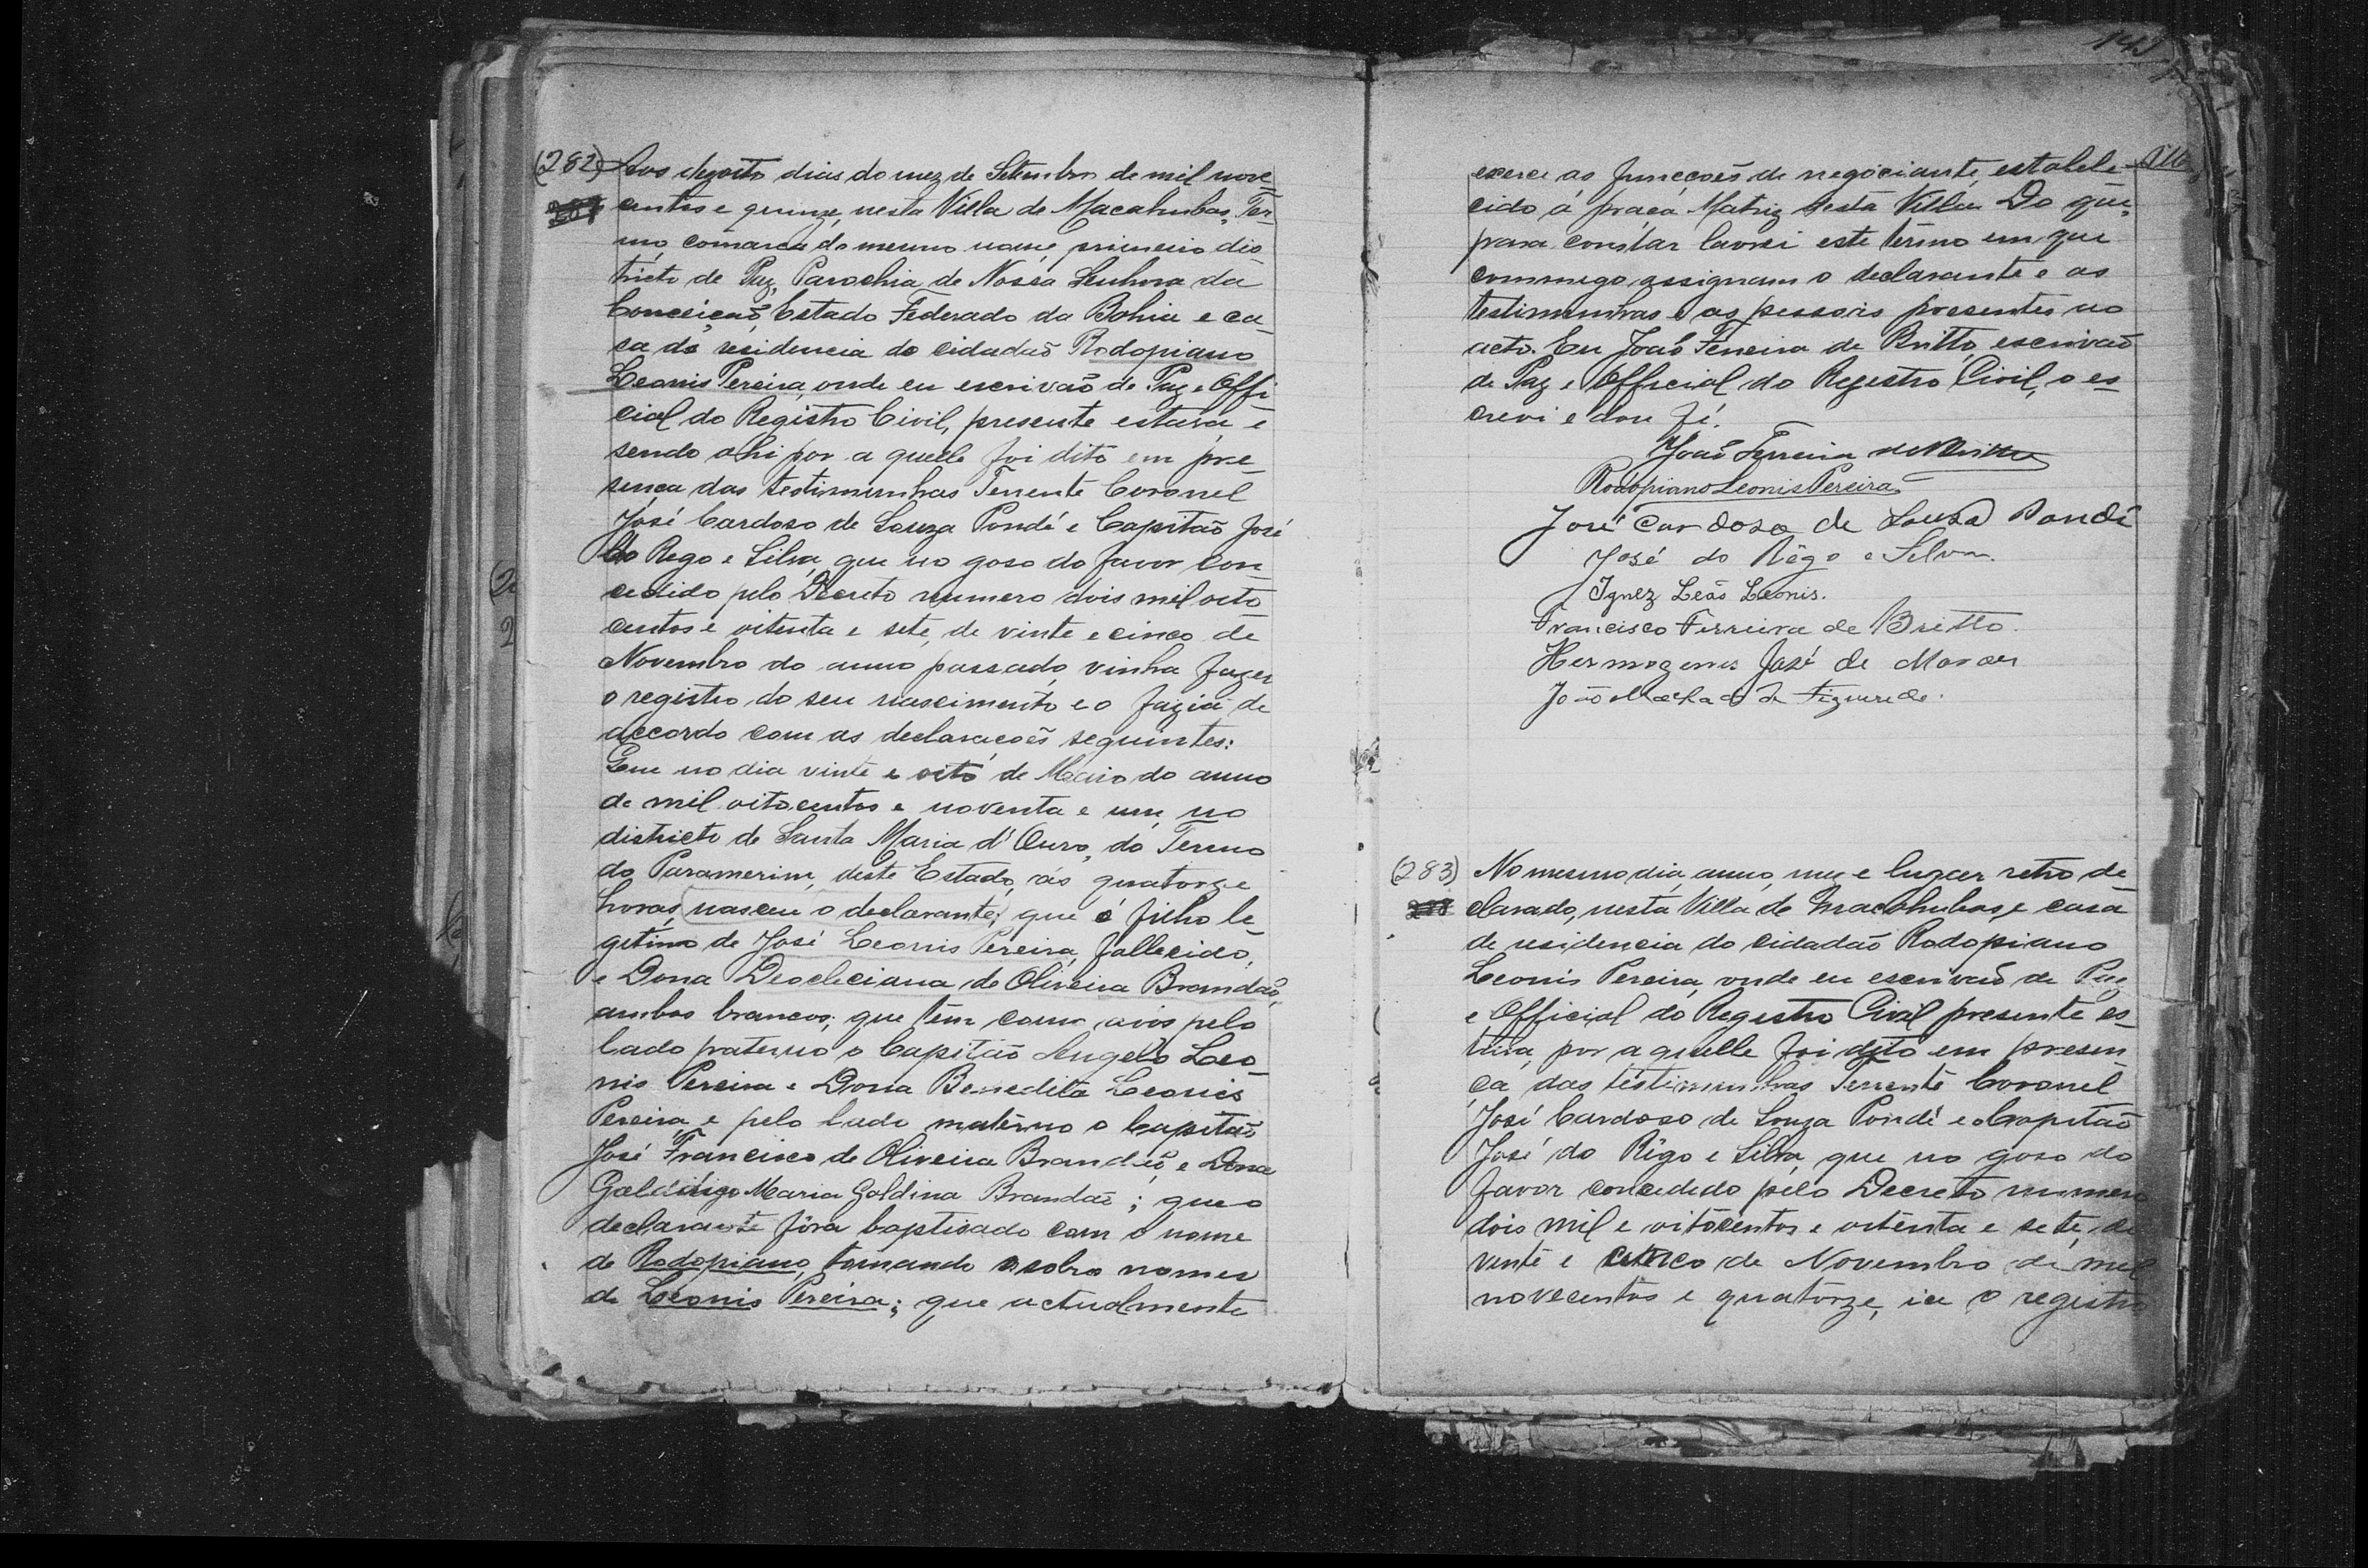 (282) Aos dezoito dias do mez de Setembro de mil nove
centos e quinze, nesta Villa de Macahubas, Ter-
mo, comarca do mesmo nome, primeiro dis
tricto de Paz, Parochia de Nossa Senhora da
Conceição, Estado Federado da Bahia e ca-
sa de residencia do cidadão Rodopiano
Leonis Pereira, onde eu escrivão de Paz e Offi
cial do Registro Civil, presente estava, e
sendo ahi por a quelle foi dito em pre-
sença das testimunhas Tenente Coronel
José Cardoso de Souza Pondé e Capitão José
do Rego e Silva, que no goso do favor con
cedido pelo Decreto numero dois mil oito
centos e oitenta e sete, de vinte e cinco de
Novembro do anno passado, vinha fazer
o registro do seu nascimento e o fazia de
accordo com as declaracões seguintes:
Que no dia vinte e oito de Maio do anno
de mil oitocentos e noventa e um, no
districto de Santa Maria d'Ouro, do Termo
do Paramerim, deste Estado, ás quatorze
horas, nasceu o declarante; que é filho le-
gitimo de José Leonis Pereira, fallecido,
e Dona Deocleciana de Oliveira Brandão,
ambos brancos; que têm como avós pelo
lado paterno o Capitão Angelo Leo-
nis Pereira e Dona Benedita Leonis
Pereira, e pelo lado materno o Capitão
José Francisco de Oliveira Brandão e Dona
Maria Galdina Brandão; que o
declarante fôra baptisado com o nome
de Rodopiano, tomando o sobre nomes
de Leonis Pereira; que actualmente
exerce as funcções de negociante, estabele-
cido á praça Matriz desta Villa. Do que,
para constar lavrei este termo em que
commigo assignam o declarante e as
testimunhas e as pessoas presentes ao
acto. Eu João Ferreira de Britto, escrivão
de Paz e Official do Registro Civil, o es-
crevi e dou fé.
João Ferreira de Britto
Rodopiano Leonis Pereira
José Cardoso de Souza Pondé
José do Rêgo e Silva.
Ignez Leão Leonis.
Francisco Ferreira de Britto.
Hermogenes José de Moraes
João Machado de Figueredo.
(283) No mesmo dia, anno, mez e lugar retro de
clarado, nesta Villa de Macahubas, e casa
de residencia do cidadão Rodopiano
Leonis Pereira, onde eu escrivão de Paz
e Official do Registro Civil presente es-
tava, por a quelle foi dito em presen
ça das testimunhas Tenente Coronel
José Cardoso de Souza Pondé e Capitão
José do Rêgo e Silva, que no goso do
favor concedido pelo Decreto numero
dois mil e oitocentos e oitenta e sete, de
vinte e cinco de Novembro de mil
novecentos e quatorze, ia o registro